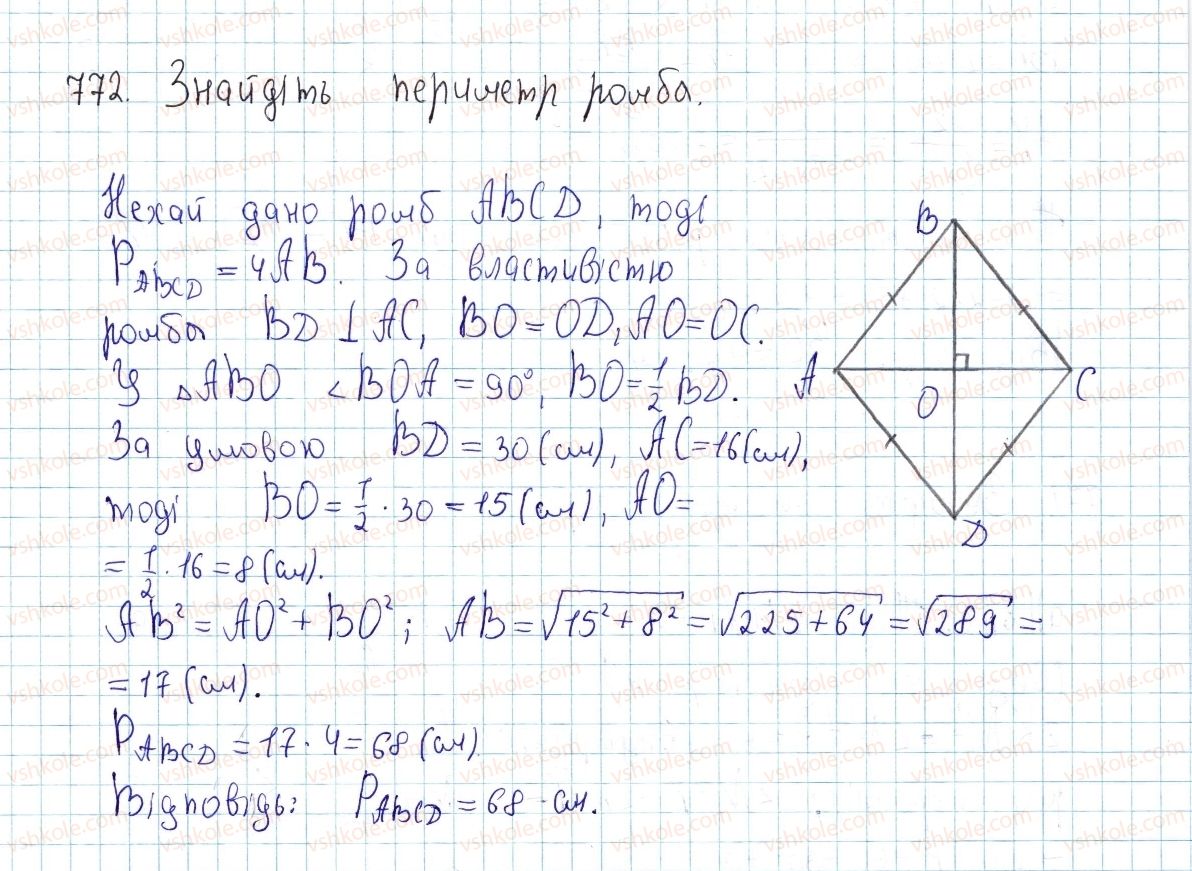 772. Знайдіть периметр ромба.
Нехай дано ромб ABCD, тоді
P_ABCD = 4AB. За властивістю
ромба BD ⊥ AC, BO = OD, AO = OC.
У △ABO ∠BOA = 90°, BO = 1/2 BD.
За умовою BD = 30 (см), AC = 16 (см),
тоді BO = 1/2 · 30 = 15 (см), AO =
= 1/2 · 16 = 8 (см).
AB² = AO² + BO²; AB = √(15² + 8²) = √(225 + 64) = √289 =
= 17 (см).
P_ABCD = 17 · 4 = 68 (см)
Відповідь: P_ABCD = 68 см.
B
A
O
C
D
vshkole.com